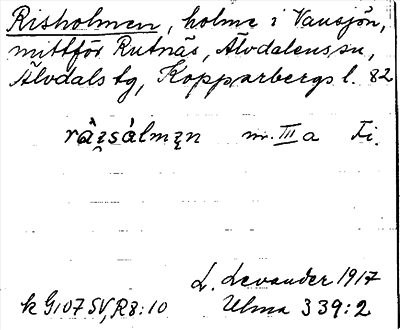 Risholmen, holme i Vansjön,
mittför Rutnäs, Älvdalens sn,
Älvdals tg, Kopparbergs l. 82
râi̯sálmęn m. III a Fi.
L. Levander 1917
k G107 SV, R8:10 Ulma 339:2